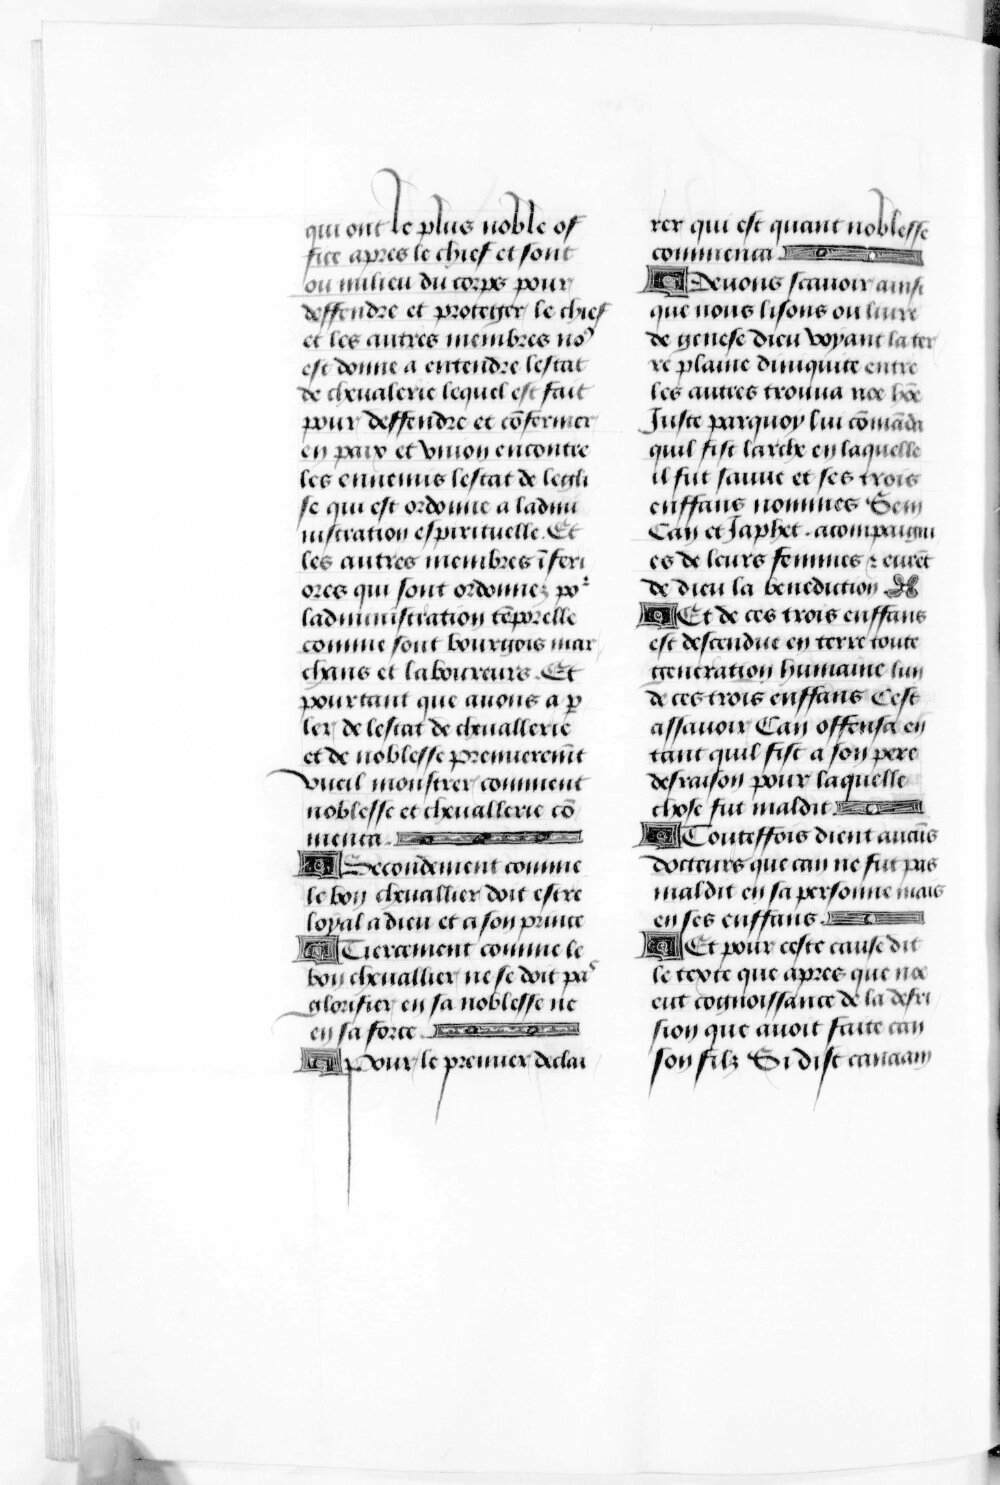 qui ont le plus noble of
fice apres le chief et sont
ou milieu du corps pour
deffendre et proteger le chief
et les autres membres no9
est donne a entendre lestat
de chevalerie lequel est fait
pour deffendre et cõfermer
en paix et vnion encontre
les ennemis lestat de legli
se qui est ordonne a ladmi
nistration espirituelle. Et
les autres membres ĩferi
ores qui sont ordonnez po᷑
ladministration tẽporelle
comme sont bourgois mar
chans et laboureurs. Et
pourtant que auons a ꝑ
ler de lestat de cheuallerie
et de noblesse premieremẽt
vueil monstrer comment
noblesse et cheuallerie cõ
menca.
Secondement comme
le bon cheuallier doit estre
loyal a dieu et a son prince
Tiercement comme le
bon cheuallier ne se doit pas
glorifier en sa noblesse ne
en sa force.
Pour le premier declai
rer qui est quant noblesse
commenca.
Deuons scauoir ainsi
que nous lisons ou liure
de genese dieu voyant la ter
re plaine diniquite entre
les autres trouua noe hõe
Juste parquoy lui cõmãda
quil fist larche en laquelle
il fut sauue et ses trois
enffans nommes Sem
Can et Japhet. acompaigni
es de leurs femmes ⁊ eurẽt
de dieu la benediction
Et de ces trois enffans
est descendue en terre toute
generation humaine lun
de ces trois enffans Cest
assauoir Can offensa en
tant quil fist a son pere
desraison pour laquelle
chose fut maldit.
Touteffois dient aucũs
docteurs que can ne fut pas
maldit en sa personne mais
en ses enffans.
Et pour ceste cause dit
le texte que apres que noe
eut cognoissance de la desri
sion que auoit faite can
son filz Si dist canaam